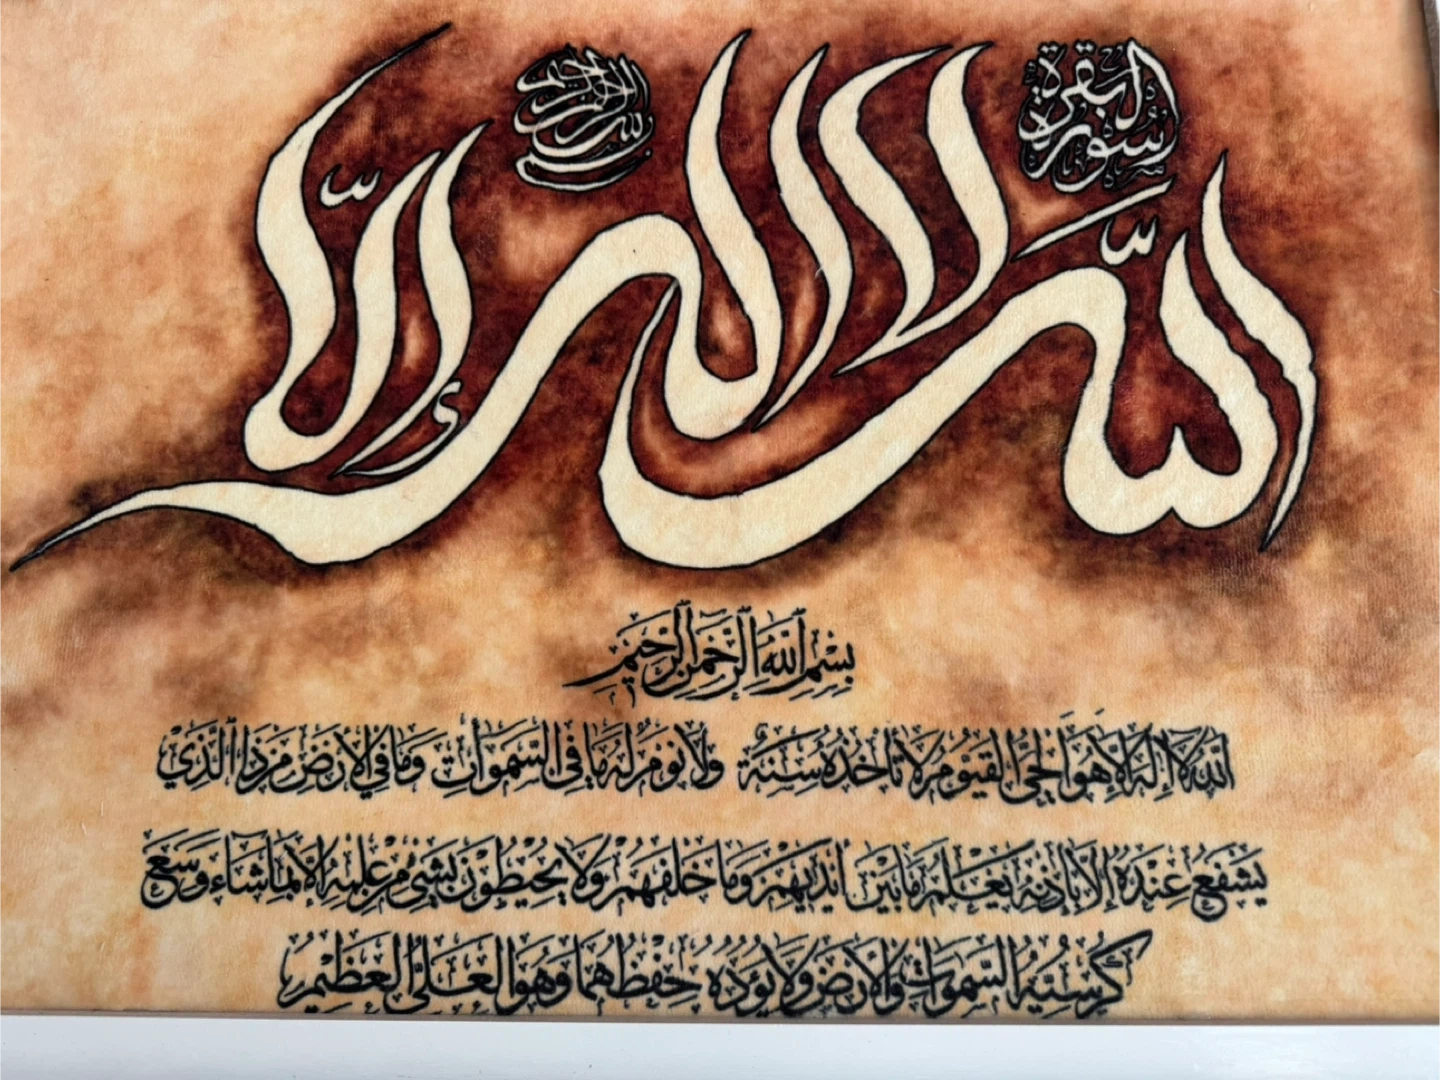 سورة البقرة
بسم الله الرحمن الرحيم
الله لا إله إلا
بِسْمِ اللهِ الرَّحْمٰنِ الرَّحِيمِ
اللّٰهُ لَا إِلٰهَ إِلَّا هُوَ الْحَيُّ الْقَيُّومُ لَا تَأْخُذُهُ سِنَةٌ وَلَا نَوْمٌ لَهُ مَا فِي السَّمٰوَاتِ وَمَا فِي الْأَرْضِ مَنْ ذَا الَّذِي
يَشْفَعُ عِنْدَهُ إِلَّا بِإِذْنِهِ يَعْلَمُ مَا بَيْنَ أَيْدِيهِمْ وَمَا خَلْفَهُمْ وَلَا يُحِيطُونَ بِشَيْءٍ مِنْ عِلْمِهِ إِلَّا بِمَا شَاءَ وَسِعَ
كُرْسِيُّهُ السَّمٰوَاتِ وَالْأَرْضَ وَلَا يَؤُدُهُ حِفْظُهُمَا وَهُوَ الْعَلِيُّ الْعَظِيمُ